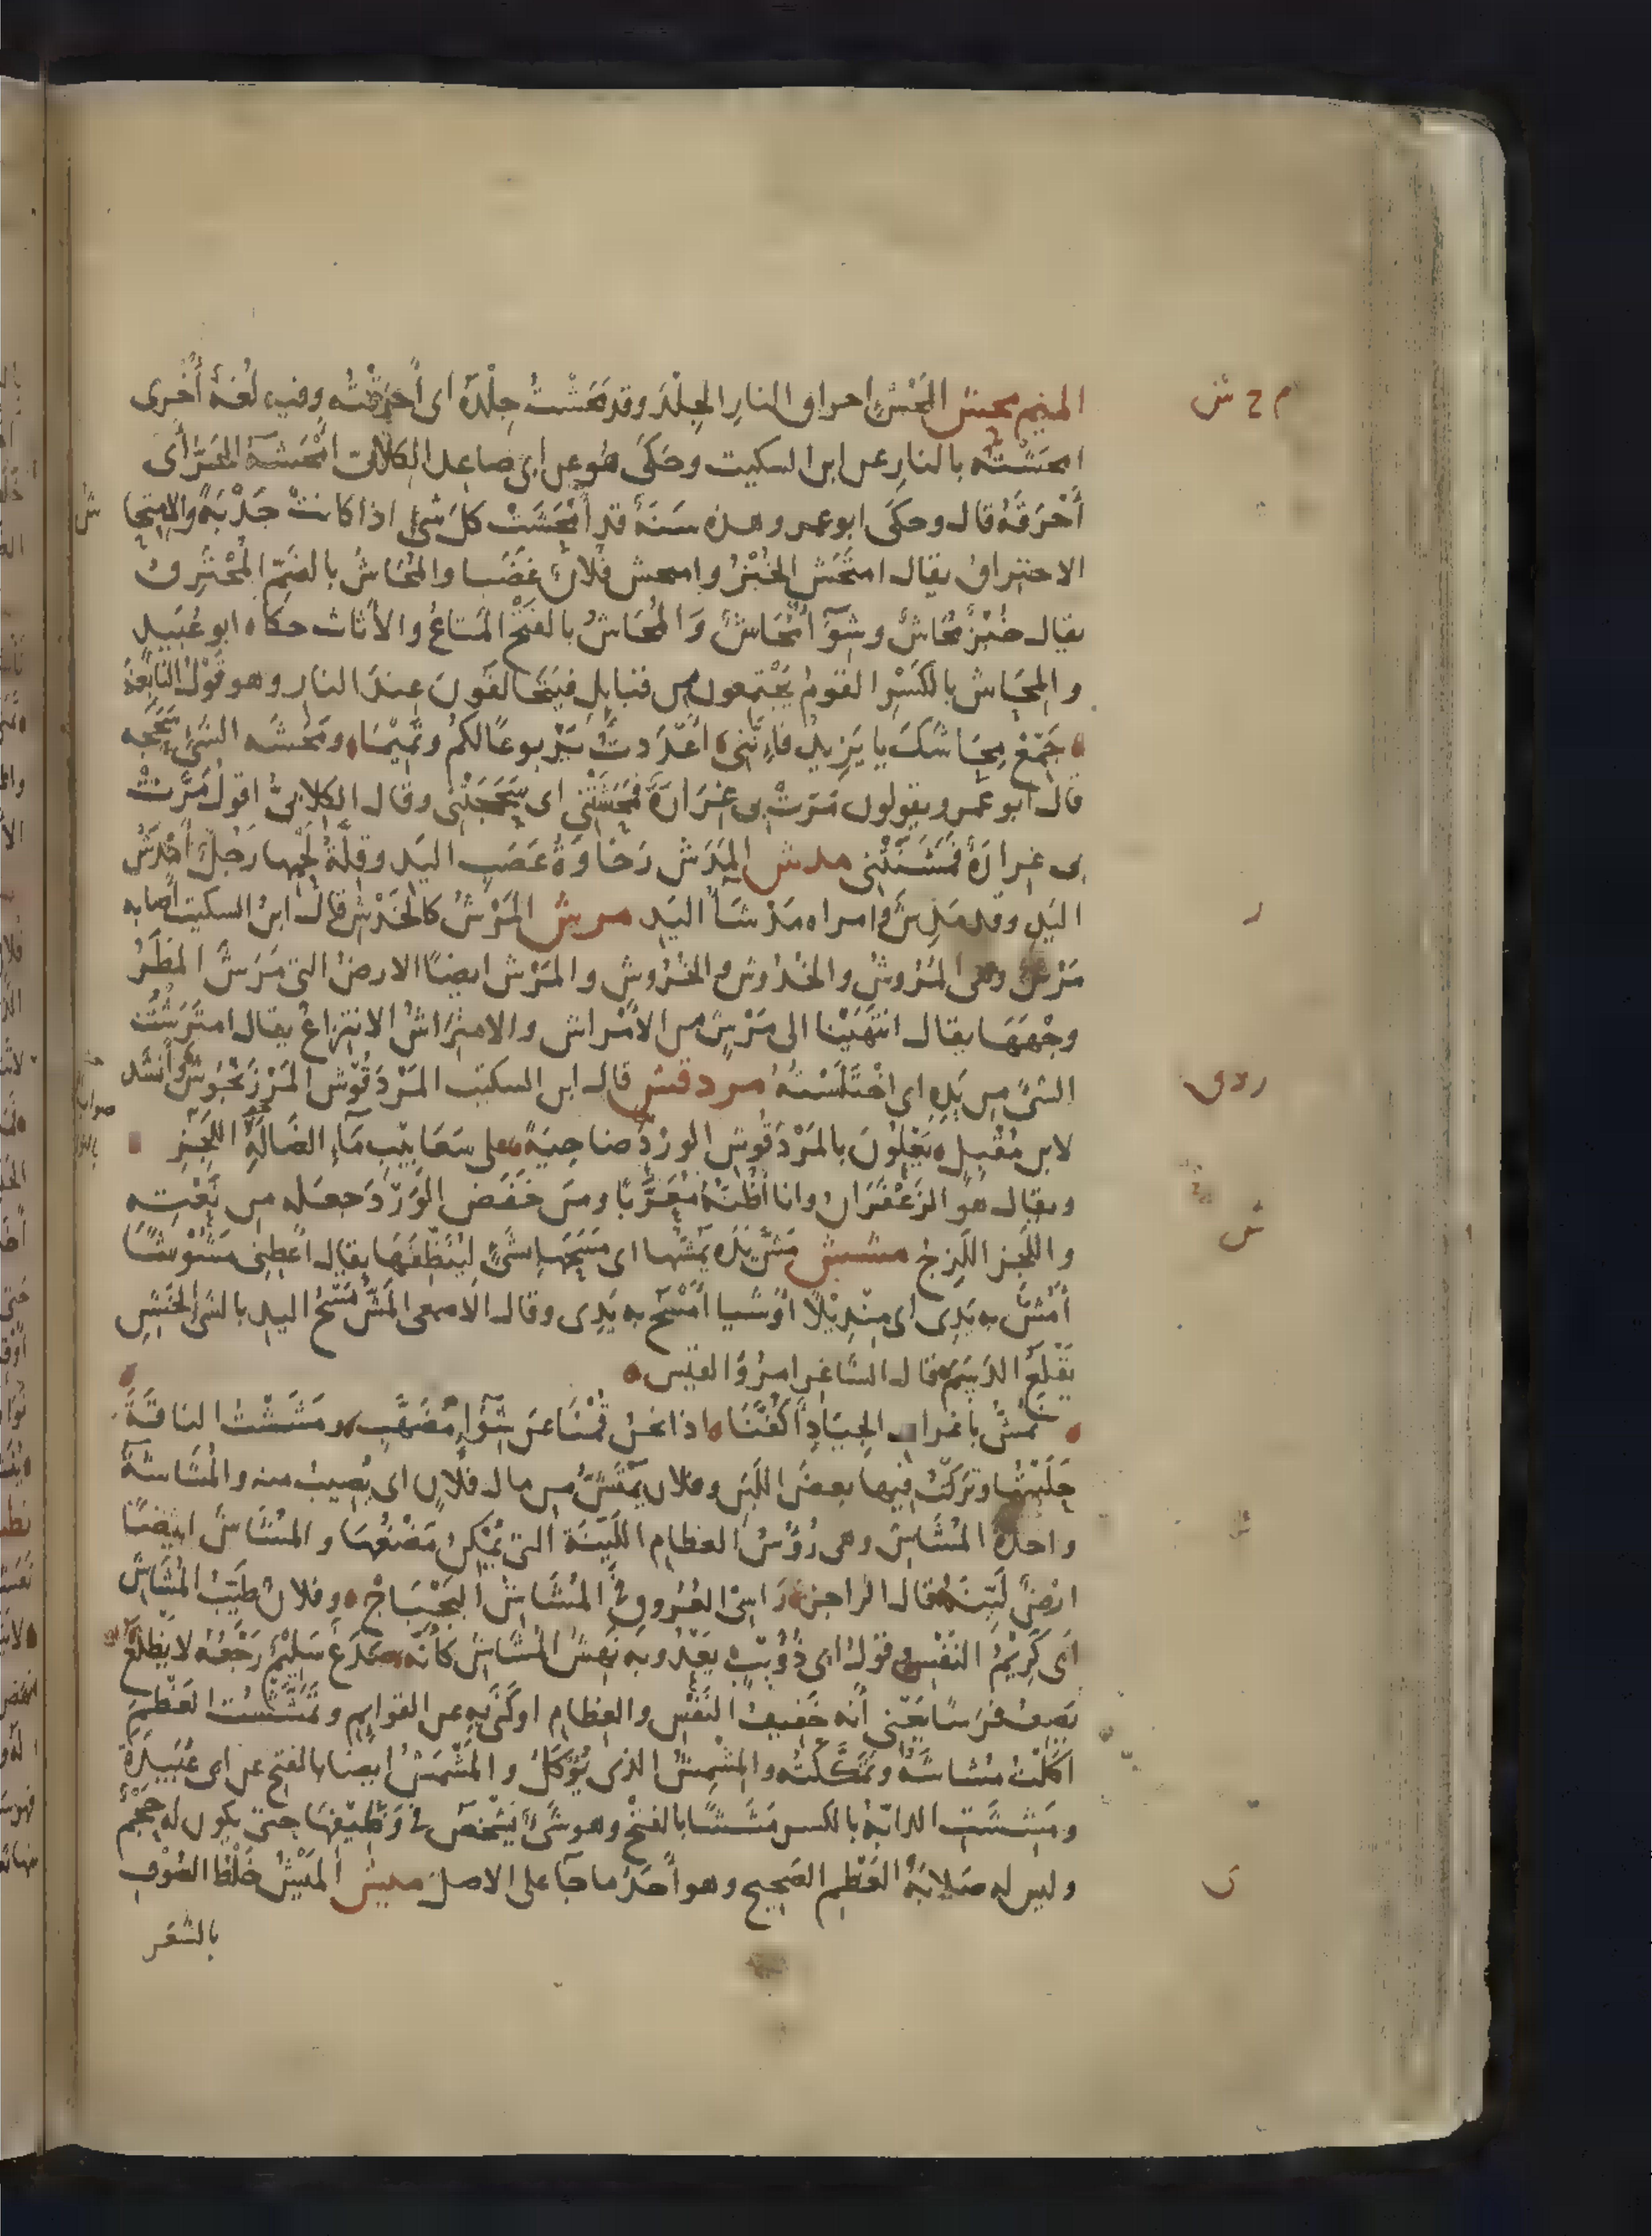 الميم محش المَحْشُ احراق النارِ الجِلْدَ وقد مَحَشْتُ جِلْدَهُ اى أَحْرَقْتُه وفيه لُغةٌ أُخْرى
م ح ش
امحَشْتُه بالنارِ عن ابن السكيت وحَكَى هو عن ابى صاعد الكلابى امْحَشَهُ الحَرُّ أى
أَحْرَقَهُ قال وحكَى ابو عمرو هذه سَنَةٌ قد أَمْحَشَتْ كلَ شىءٍ اذا كانتْ جَدْبَةً والامتِحا
ش
الاحتراقُ يقال امتَحَشَ الخُبْزُ وامتحش فُلانٌ غَضَبا والمُحَاشُ بالضَمِّ المُحْتَرِقُ
يقال خُبْزٌ مُحَاشٌ وشِوَآءٌ مُحَاشٌ وَالمَحَاشُ بالفَتْحِ المَتاعُ والأَثاث حكاه ابو عُبَيدٍ
والمِحَاش بالكَسْرِ القومُ يَجْتَمعون من قبايل فيَتَحالَفُونَ عندَ النارِ وهو قَوْلُ النابغةِ
جَمِّعْ مِحَاشَكَ يا يَزِيدُ فاِنَّنِى اَعْدَدتُ يَرْبوعًا لكمُ وتَمِيْمَا ومَحَشَه الشىءُ سَحَجَه
قال ابو عمرو يقولون مَرَّتْ بى غِرَارَةٌ فمَحَشَتْنى اى سَحَجَتْنى وقال الكلابىُّ اقولُ مَرَّتْ
بى غِرارَةٌ فمَشَنَتْنِى مدش المَدَشُ رَخَاوَةُ عَصَبِ اليَدِ وقِلَّةُ لَحْمِها رَجُلٌ أَمْدَشُ
اليَدِ وقد مَدِشَ وامراه مَدْشَآءُ اليَدِ مرش المَرْشُ كالخَدْشِ قال ابنُ السكيت أصابه
ر
مَرْشٌ وهى المُرُوشُ والخُدُوشُ والخُرُوشُ والمَرْش ايضًا الارضُ التى مَرَشَ المَطَرُ
وجْهَهَا يقال انتَهَيْنا الى مَرْشٍ من الأَمْراش والامتِرَاشُ الانتِزاعُ يقال امتَرَشْتُ
الشىءَ من يَدِهِ اى اخْتَلَسْتُهُ مردقش قال ابن السكيت المَرْدَقُوش المَرْزَنْجُوشُ وأَنشَد
ر د ق
صوابه
لابن مُقْبِلٍ يَعْلُونَ بالمَرْدَقُوشِ الوردَ ضاحِيَةً على سَعَابِيبِ مَآءِ الضَالَةِ اللَّجِزِ
ويقال هو الزَعْفَرَانُ وانا اَظُنّهُ مُعَرَّبًا ومن خَفَضَ الوَرْدَ جعَله من نَعْتِه
واللَّجِز اللَزِجُ مشش مَشَّ يَدَه يَمُشُّها اى مَسَحَهَا بِشَىءٍ لِيُنَظِّفَهَا يقال اَعطِنى مَشُوشًا
ش
أَمُشُّ به يَدِى اى مِنْدِيْلًا اوْ شيا اَمْسَحُ به يَدِى وقال الاصمعى المَشُّ مَسْحُ اليدِ بالشىءِ الخَشِنِ
يَقْلَعُ الدَسَمَ قال الشاعر امرؤ القيس
نَمُشُّ باَعْرافِ الجِيَادِ أَكُفَّنَا اذا نحنُ قُمْنَا عن شِوَآءٍ مُضَهَّبِ ومَشَشْتُ الناقةَ
حَلَبْتُها وتَرَكْتُ فيها بعضَ اللَبَنِ وفلان يَمْتَشُّ من مال فلانٍ اى يُصِيبُ منه والمُشَاشَةُ
واحدةُ المُشَاشِ وهى رُؤُسُ العظامِ اللَيِّنَة التى يُمْكِنُ مَضْغُهَا والمُشَاشُ ايضًا
ارضٌ لَيِّنَةٌ قال الراجز رَاسِى العُرُوقِ فى المُشَاشِ البَجْبَاجْ وفلانٌ طَيِّبُ المُشَاشِ
اى كَرِيْمُ النَفْسِ وقولُ ابى ذُؤَيْبٍ يَعْدُو به نَهِشُ المُشَاشِ كأنَّه صَدَعٌ سَلِيْمٌ رَجْعُهُ لا يَظْلَعُ
يَصِفُ فرَسًا يَعْنِى أنّه خَفِيفُ النَفْسِ والعِظَامِ او كَنَى به عن القوايمِ وتَمَشَّشْتُ العَظْمَ
اكَلْتُ مُشاشَهُ وتَمَكَّكْتُه والمِشْمِشُ الذى يُؤكَلُ والمَشْمَشُ ايضا بالفتح عن ابى عُبَيدَةَ
ومَشِشَتِ الدابّةُ بالكسر مَشَشًا بالفتح وهو شَىءٌ يَشْخَصُ فى وَظِيفِهَا حتى يكون له حَجْمٌ
وليس له صَلابَةُ العَظْمِ الصَحيحِ وهو اَحَدُ ما جآءَ على الاصلِ ميش المَيْشُ خَلْطُ الصُوْفِ
ى
بالشَعَر